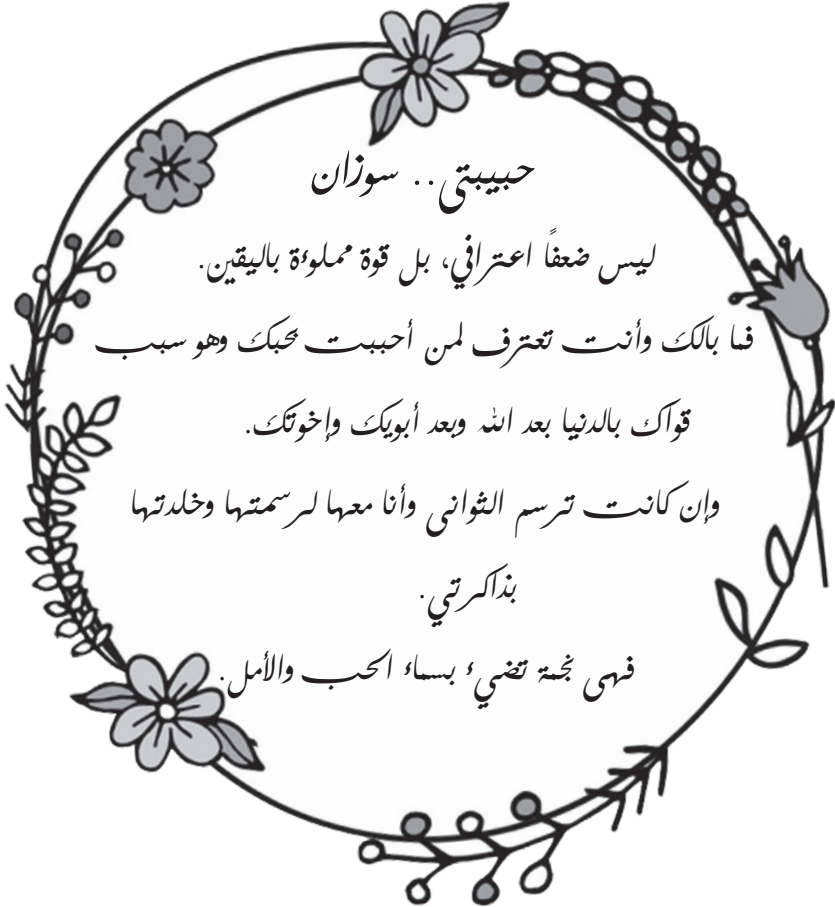 حبيبتى.. سوزان
ليس ضعفًا اعترافي، بل قوة مملوءة باليقين.
فما بالك وأنت تعترف لمن أحببت محبك وهو سبب
قواك بالدنيا بعد الله وبعد أبويك وإخوتك.
وإن كانت ترسم الثوانى وأنا معها لرسمتها وخلدتها
بذاكرتي.
فهى نجمة تضيء بسماء الحب والأمل.